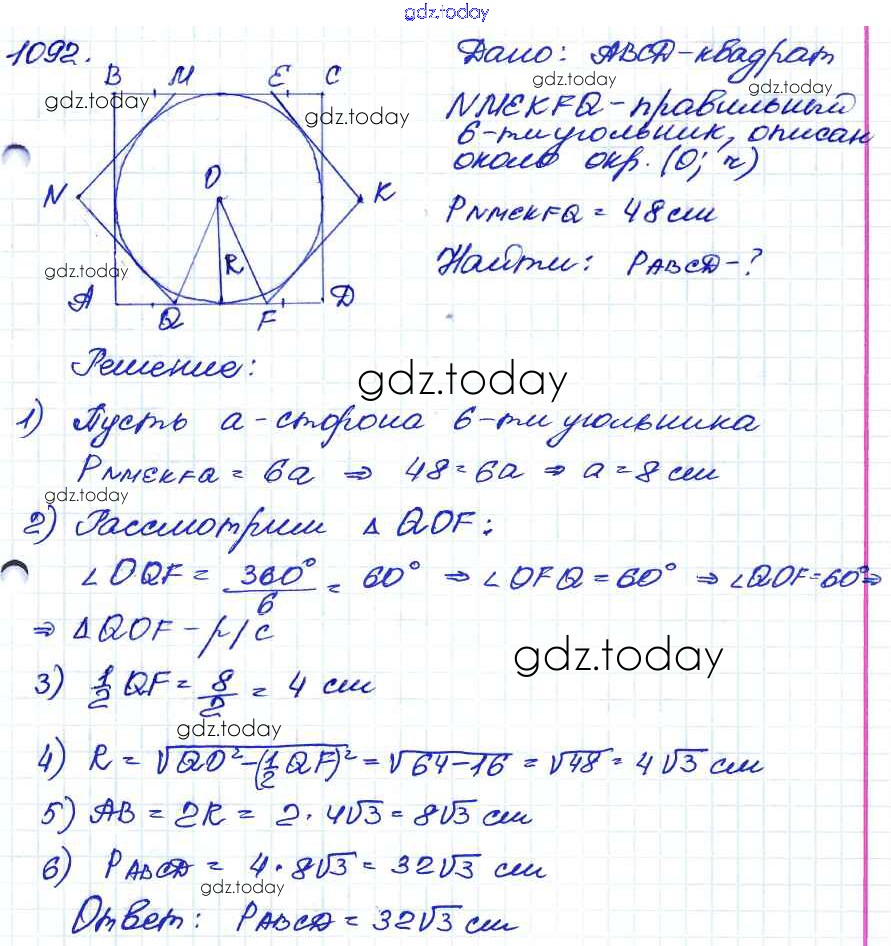 gdz.today
1092.
B M E C
gdz.today
gdz.today
N O K
R
gdz.today
A Q F D
Дано: ABCD-квадрат
gdz.today
NMEKFQ-правильный
6-тиугольник, описан
около окр. (O; r)
PNMEKFQ = 48 см
Найти: PABCD-?
Решение:
gdz.today
1) Пусть a-сторона 6-тиугольника
PNMEKFQ = 6a ⇒ 48=6a ⇒ a=8 см
gdz.today
2) Рассмотрим △ QOF:
∠OQF = 360°/6 = 60° ⇒ ∠OFQ = 60° ⇒ ∠QOF=60° ⇒
⇒ △QOF - р/с
gdz.today
3) 1/2 QF = 8/2 = 4 см
gdz.today
4) R = √QO²-(1/2 QF)² = √64-16 = √48 = 4√3 см
5) AB = 2R = 2·4√3 = 8√3 см
6) PABCD = 4·8√3 = 32√3 см
gdz.today
Ответ: PABCD = 32√3 см